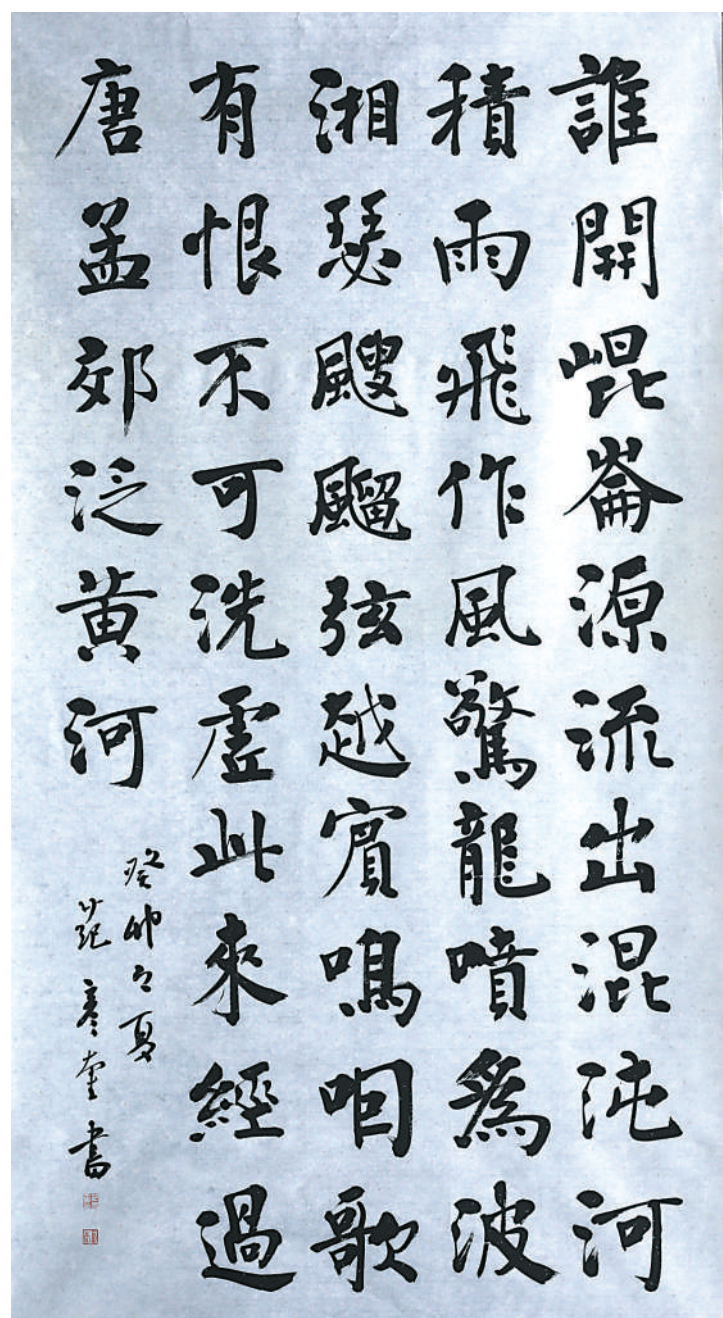 誰開崐崙源流出混沌河
積雨飛作風驚龍噴爲波
湘瑟颼飀弦越賓鳴咽歌
有恨不可洗虛此來經過
唐孟郊泛黄河
癸卯之夏
奎書